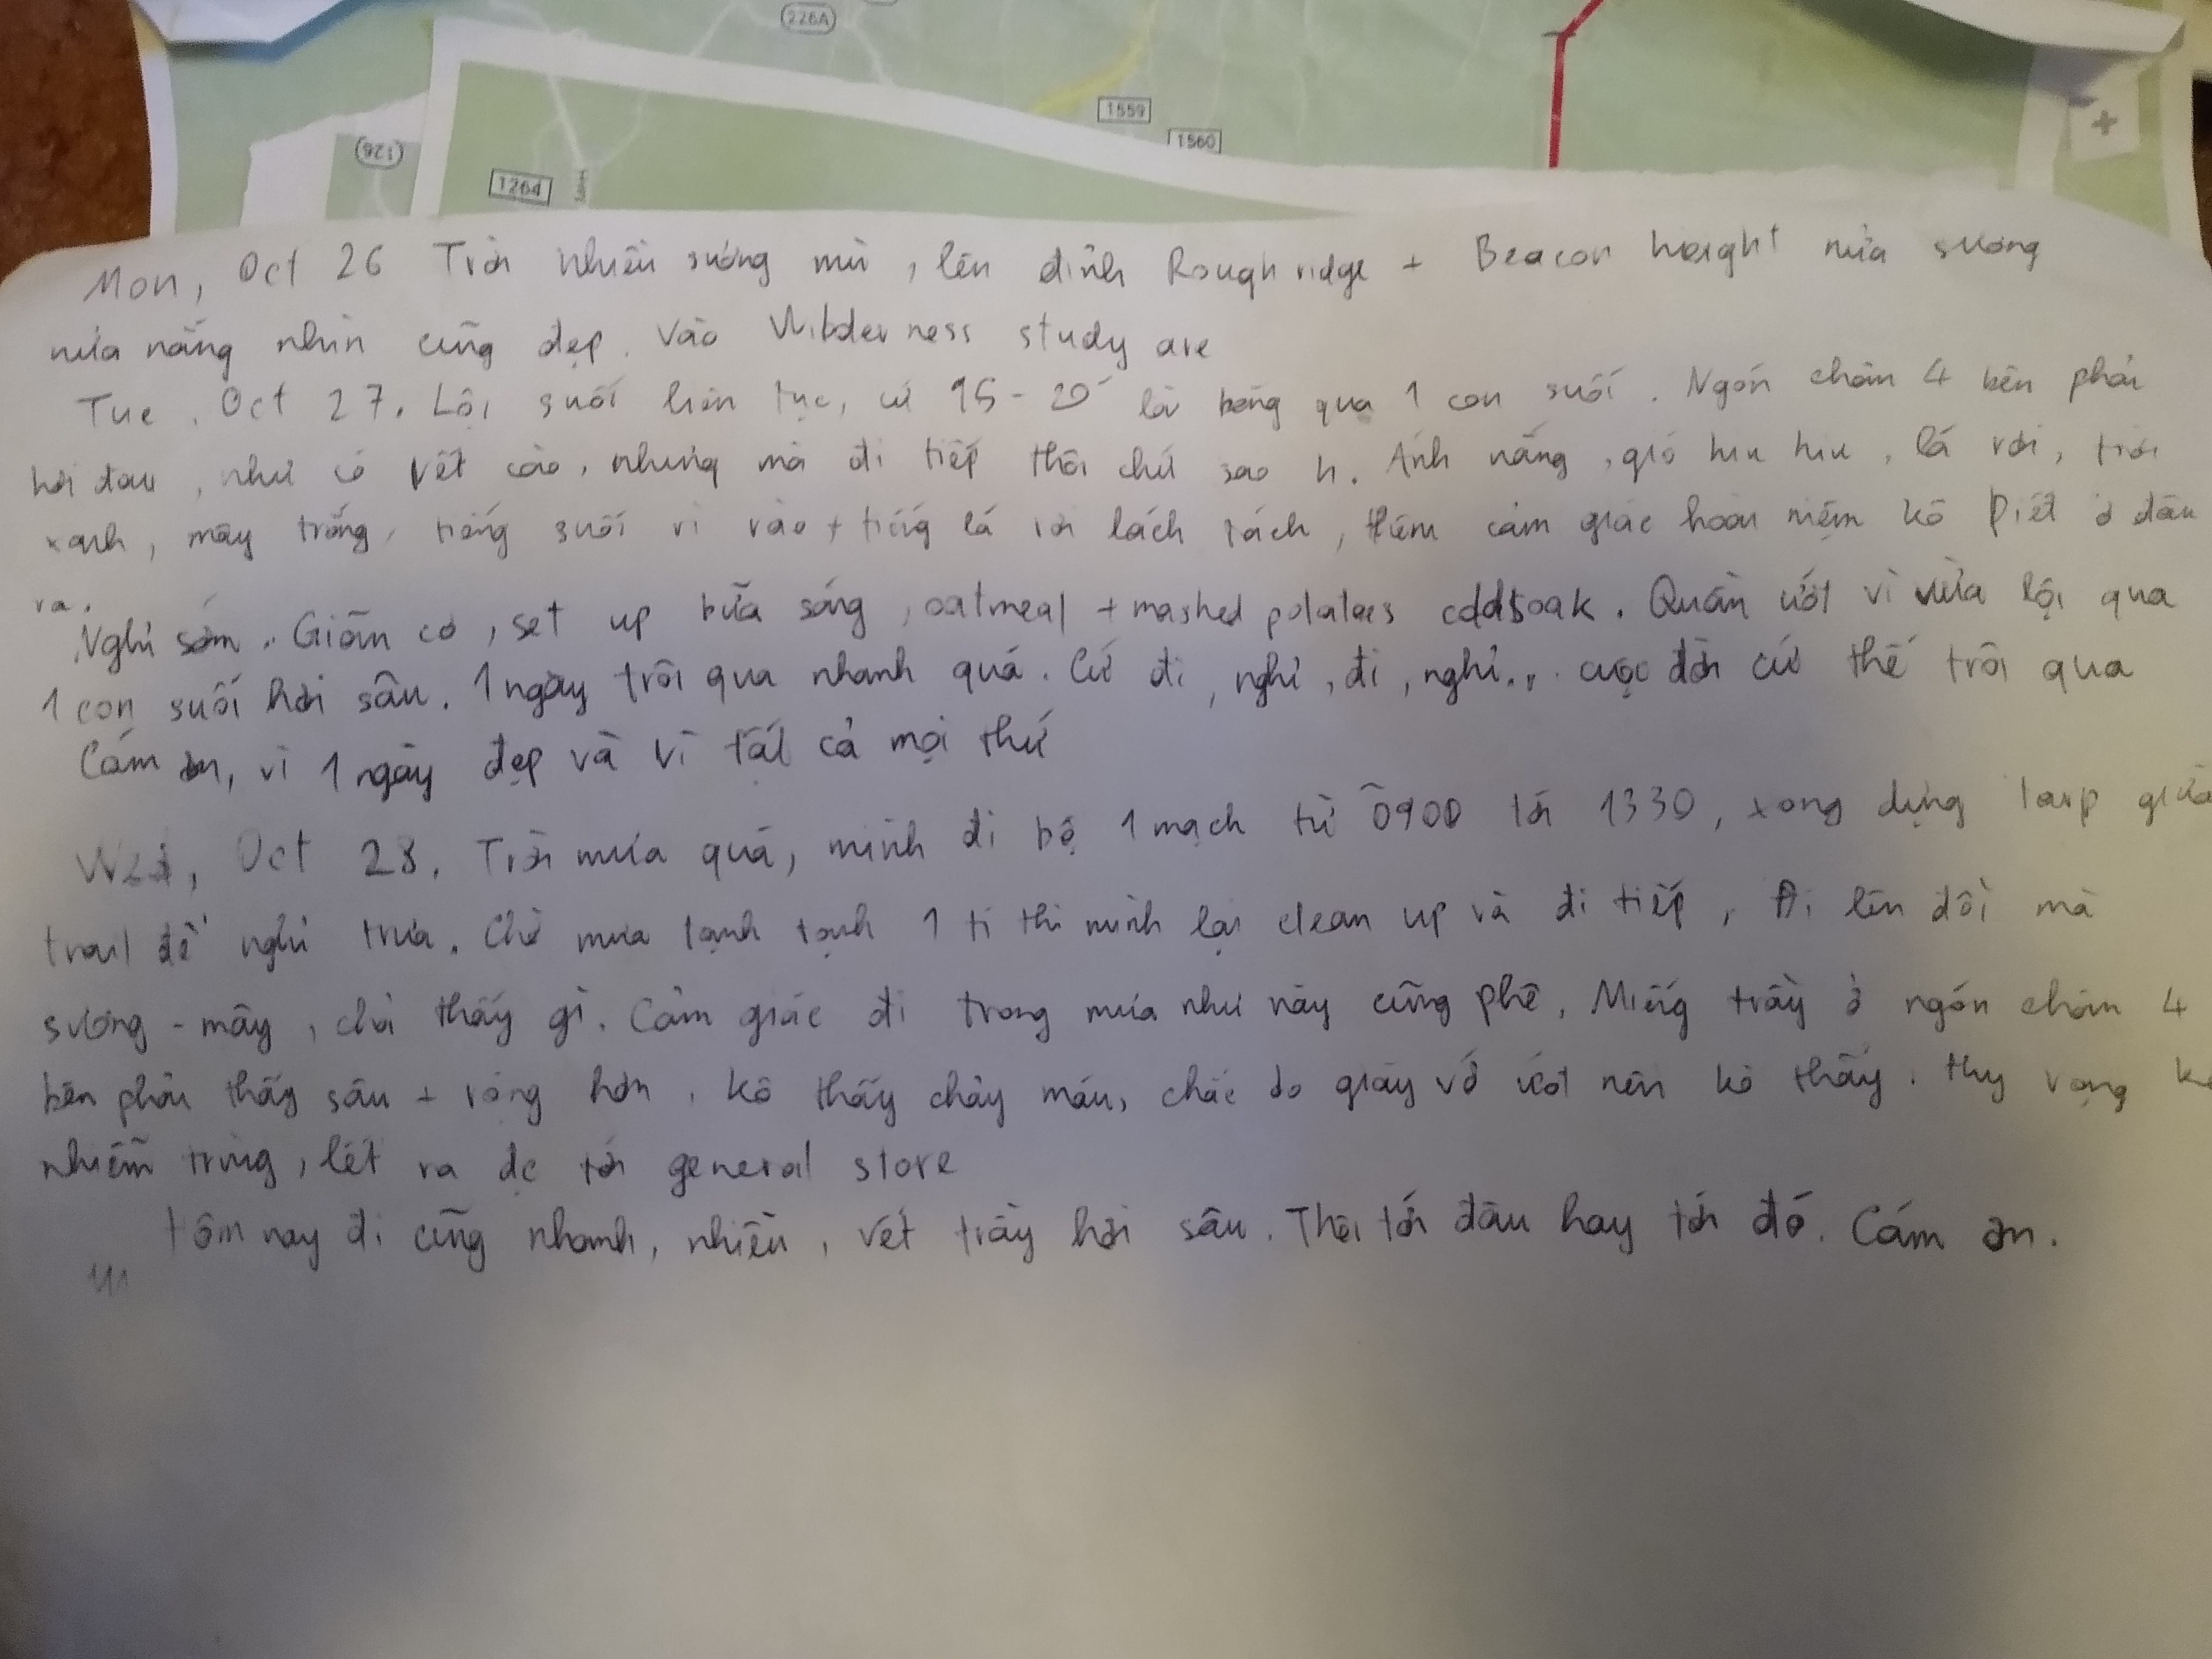 226A
1559
1560
126
1264
Mon, Oct 26 Trời nhiều sương mù, lên đỉnh Rough ridge + Beacon height nửa sương
nửa nắng nhìn cũng đẹp. Vào Wilderness study are
Tue, Oct 27. Lội suối liên tục, cứ 15-20' là băng qua 1 con suối. Ngón chân 4 bên phải
hơi đau, như có vết cào, nhưng mà đi tiếp thôi chứ sao h. Ánh nắng, gió hiu hiu, lá rơi, trời
xanh, mây trắng, tiếng suối rì rào + tiếng lá rơi lách tách, thêm cảm giác hoài niệm kô biết ở đâu
ra.
Nghỉ sớm. Giãn cơ, set up bữa sáng, oatmeal + mashed potatoes coldsoak. Quần ướt vì vừa lội qua
1 con suối hơi sâu. 1 ngày trôi qua nhanh quá. Cứ đi, nghỉ, đi, nghỉ... cuộc đời cứ thế trôi qua
Cám ơn, vì 1 ngày đẹp và vì tất cả mọi thứ
Wed, Oct 28. Trời mưa quá, mình đi bộ 1 mạch từ 0900 tới 1330, xong dựng tarp giữa
trail để nghỉ trưa. Chờ mưa tạnh tạnh 1 tí thì mình lại clean up và đi tiếp. Đi lên đồi mà
sương - mây, chả thấy gì. Cảm giác đi trong mưa như này cũng phê. Miếng trầy ở ngón chân 4
bên phải thấy sâu + rộng hơn, kô thấy chảy máu, chắc do giày vớ ướt nên kô thấy. Hy vọng kô
nhiễm trùng, lết ra đc tới general store
Hôm nay đi cũng nhanh, nhiều, vết trầy hơi sâu. Thôi tới đâu hay tới đó. Cám ơn.